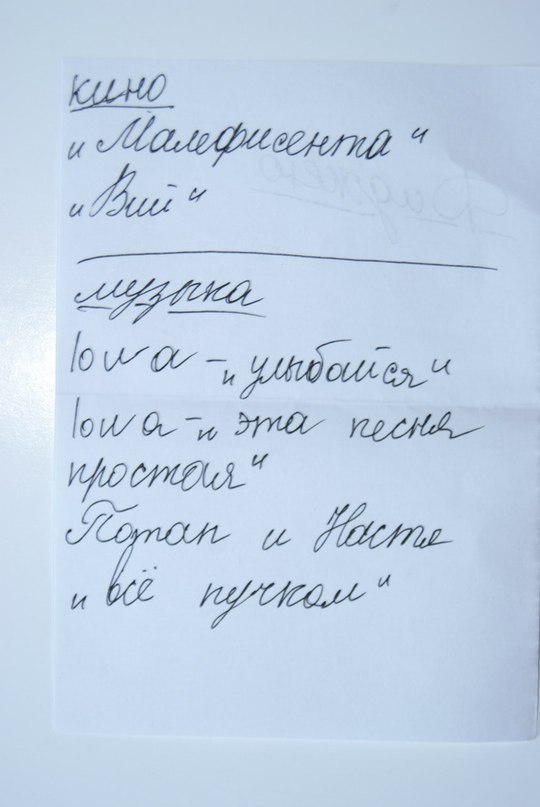 кино
„Малефисента“
„Вий“
музыка
Iowa – „улыбайся“
Iowa – „эта песня
простая“
Потап и Настя
„всё пучком“